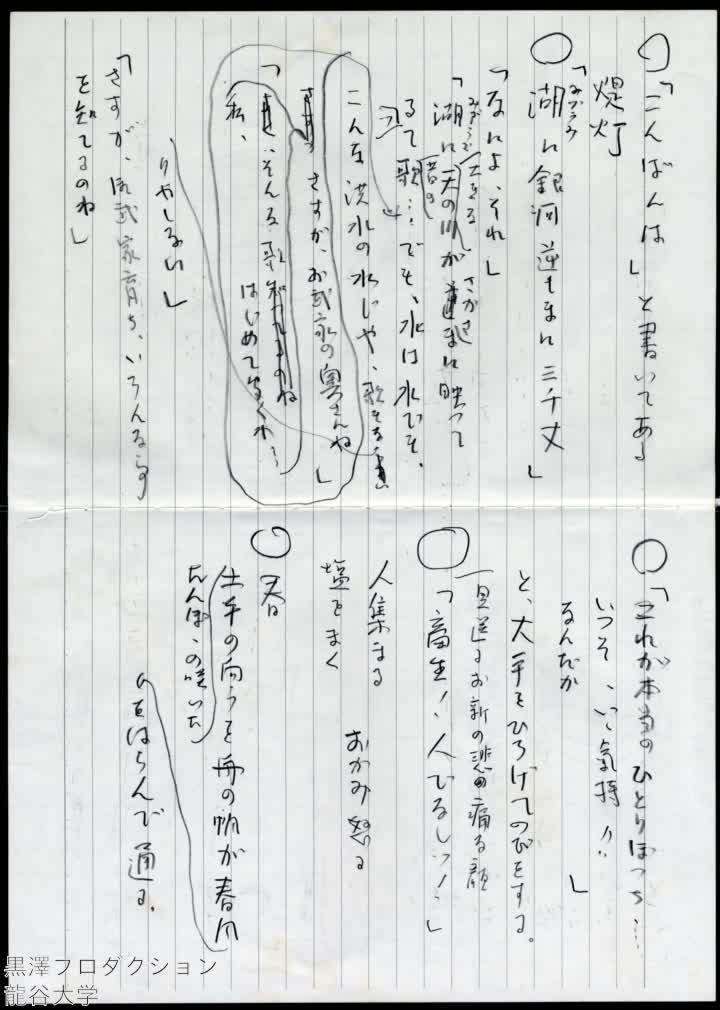 「こんばんは」と書いてある
焜灯
「湖に銀河逆しまに三千丈」
みずうみ
「なによ、それ」
「湖に天の川が逆まに映って
さかさ
るて歌…でも、水は水でも、
こんな洪水の水じゃ、歌にも
さすが、お武家の奥さんね」
「そんな歌知れてるのね
私、はじめて聞くわ…
りやしない」
「さすが、お武家育ち、いろんな
を知てるのね」
「これが本当のひとりぼっち…
いっそ、いゝ気持!!
るんだか」
と、大手をひろげてのびをする。
見送るお新の悲痛な顔
「畜生!人でなしっ!」
人集まる
おかみ怒る
塩をまく
春
土手の向うを舟の帆が春風
たんぽゝの咲いた
をはらんで通る。
黒澤プロダクション
龍谷大学